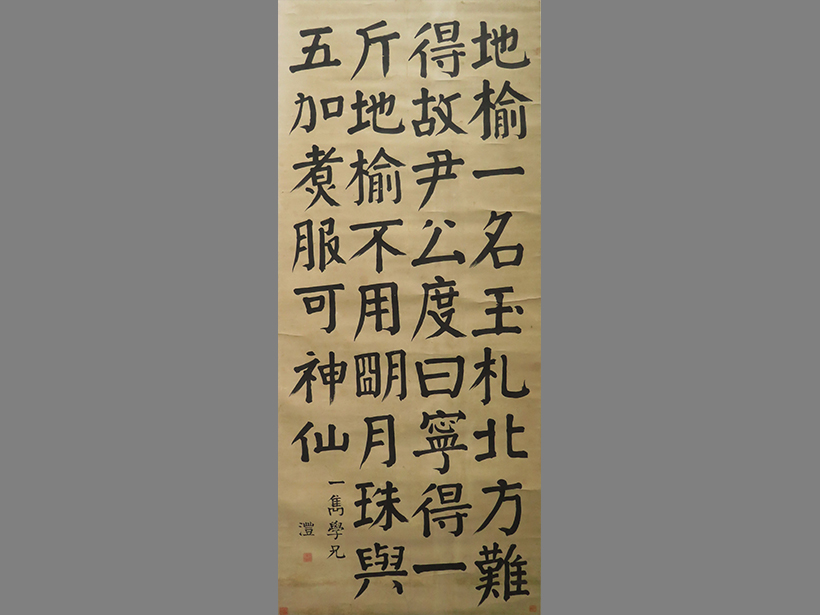 地榆一名玉札北方難
得故尹公度曰寧得一
斤地榆不用朙月珠與
五加煑服可神仙
一雋學兄
灃